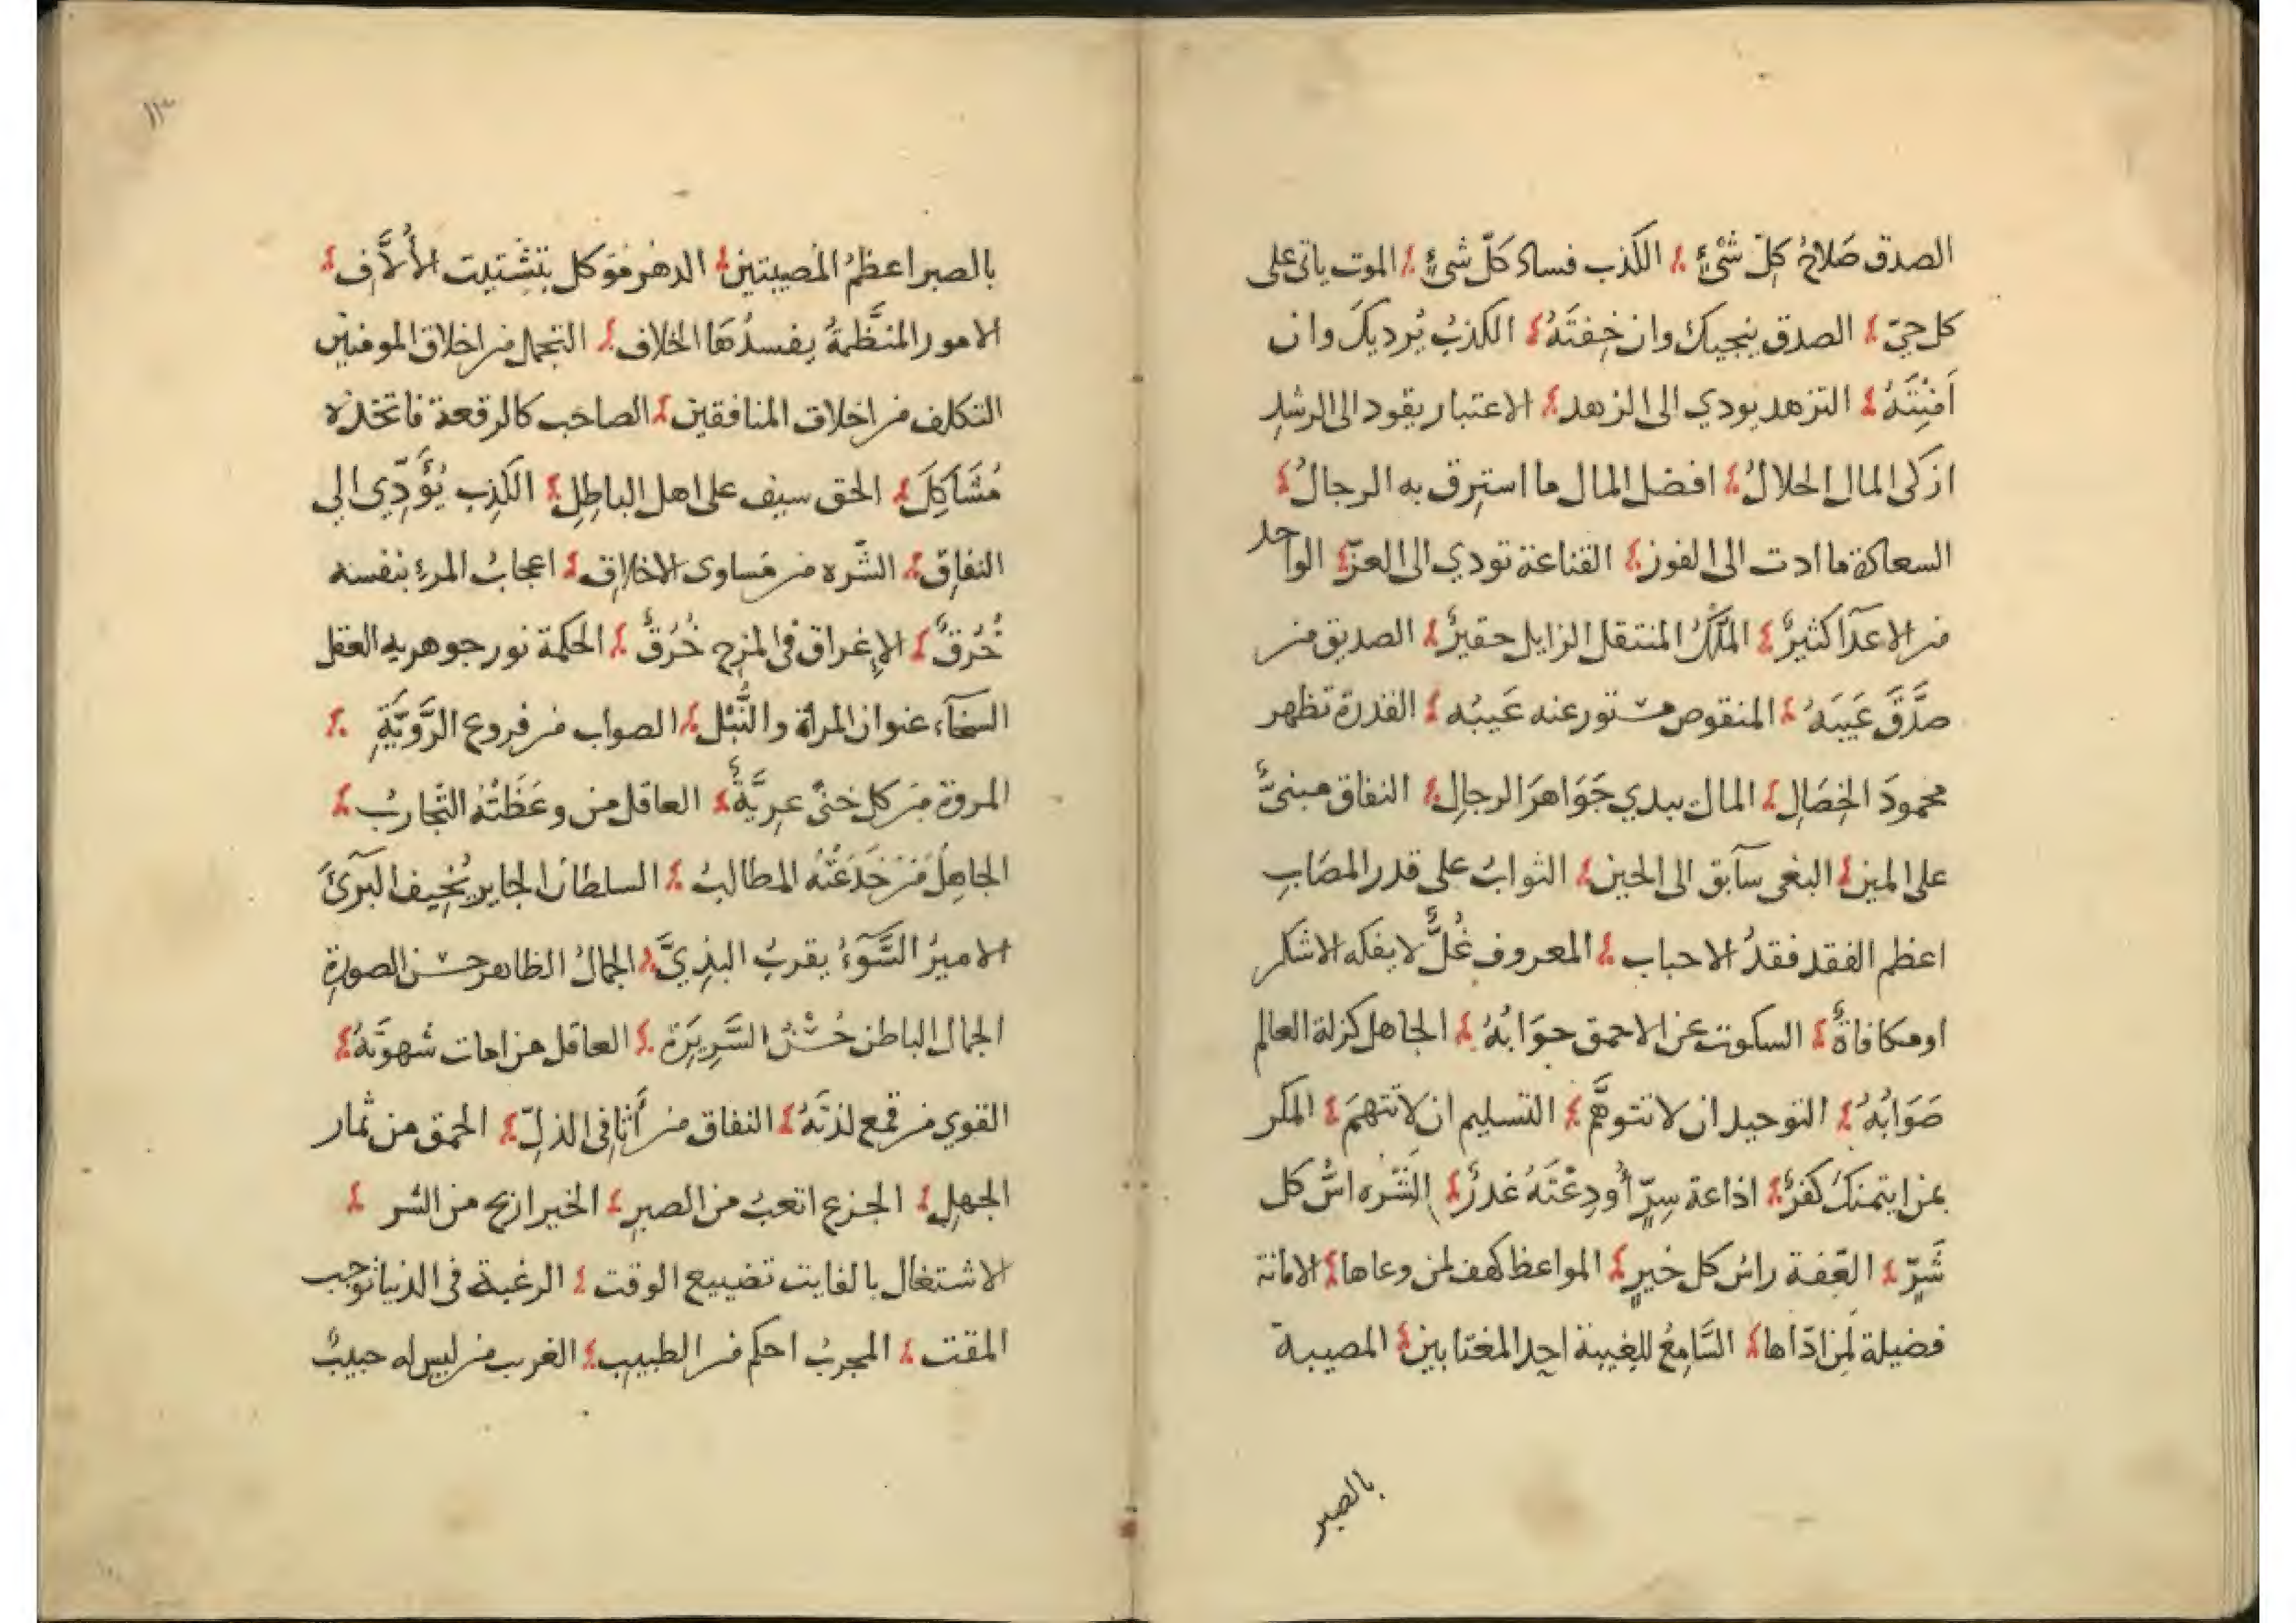 الصدق صَلَاحُ كِلّ شَىْءٍ الكَذب فساد كَلّ شىءٍ الموت ياتى على
كل حيّ الصدق ينجيك وان خِفتَهُ الكذبُ يُرديكَ وان
اَمِنْتَهُ التزهد يودي الى الزهد الاعتبار يقود الى الرشدِ
ازكى المال الحلالُ افضل المال ما استرق به الرجالُ
السعادة ما ادت الى الفوز القناعة تودي الى العزّ الواحد
من الاعدآ كثيرٌ المُلكُ المنتقل الزايل حقيرٌ الصديق من
صدَّقَ غَيبَهُ المنقوص مستور عنه عَيبُه القدرة تظهر
محمودَ الخِصَالِ المال يبدي جَوَاهرَ الرجالِ النفاق مبنىٌّ
على المين البغى سآبق الى الحين الثوابُ على قدر المصَابِ
اعظم الفقد فقدُ الاحباب المعروف غُلٌّ لا يفكه الا شكر
او مكافاةٌ السكوت عن الاحمق جوَابُهُ الجاهل كزلة العالم
صَوَابُهُ التوحيد ان لا تتوهَّم التسليم ان لا تتهمَ المكر
بمن ايتمنكَ كفرٌ اذاعة سِرٍّ أُودِعْتَهُ غدرٌ الشَّرَه اسُّ كل
شَرٍّ العّفة راسُ كل خيرٍ المواعظ كهف لمن وعاها الامانة
فضيلة لِمَن ادّاها السَّامِعُ للغِيبة احد المغتابين المصيبة
بالصبر
١١٣
بالصبر اعظمُ المُصيبتين الدهر مَوَكل بِتَشْتِيت الأُلَّاف
الامور المنتَّظمةُ يفسدُهَا الخلاف التجمل من اخلاق المومنين
التكلف من اخلاق المنافقين الصاحب كالرقعة فاتخذه
مُشَاكِلَ الحق سيف على اهل الباطِلِ الكَذِب يُؤَدّي الى
النفاق الشّره من مَساوى الاخلاق اعجابُ المرءِ بنفسه
حُمُقٌ الإغراق فى المزح خُرُقٌ الحكمة نور جوهريه العقل
السخآء عنوان المرأة والنُّبْل الصواب من فروع الرَّوِيَّةِ
المروة من كل خنًى عرِيَّةٌ العاقل من وعَظَتْهُ التّجاربُ
الجاهِلُ مَن خَدَعَتْهُ المطالبُ السلطان الجاير يُخِيف البرئَ
الامير السَّوْءُ يقربُ البذِىَّ الجمالُ الظاهر حسن الصورةِ
الجمال الباطن حُسْنُ السَّرِيرَة العاقل من امات شهوتَهُ
القوي من قمع لذتَهُ النفاق من أثافى الذلّ الحمق من ثمار
الجهلِ الجزع اتعبُ من الصبرِ الخير اربح من الشر
الاشتغال بالفايت تضييع الوقت الرغبة فى الدنيا توجب
المقت المجربُ احكم من الطبيب الغرب من ليس له حبيبٌ